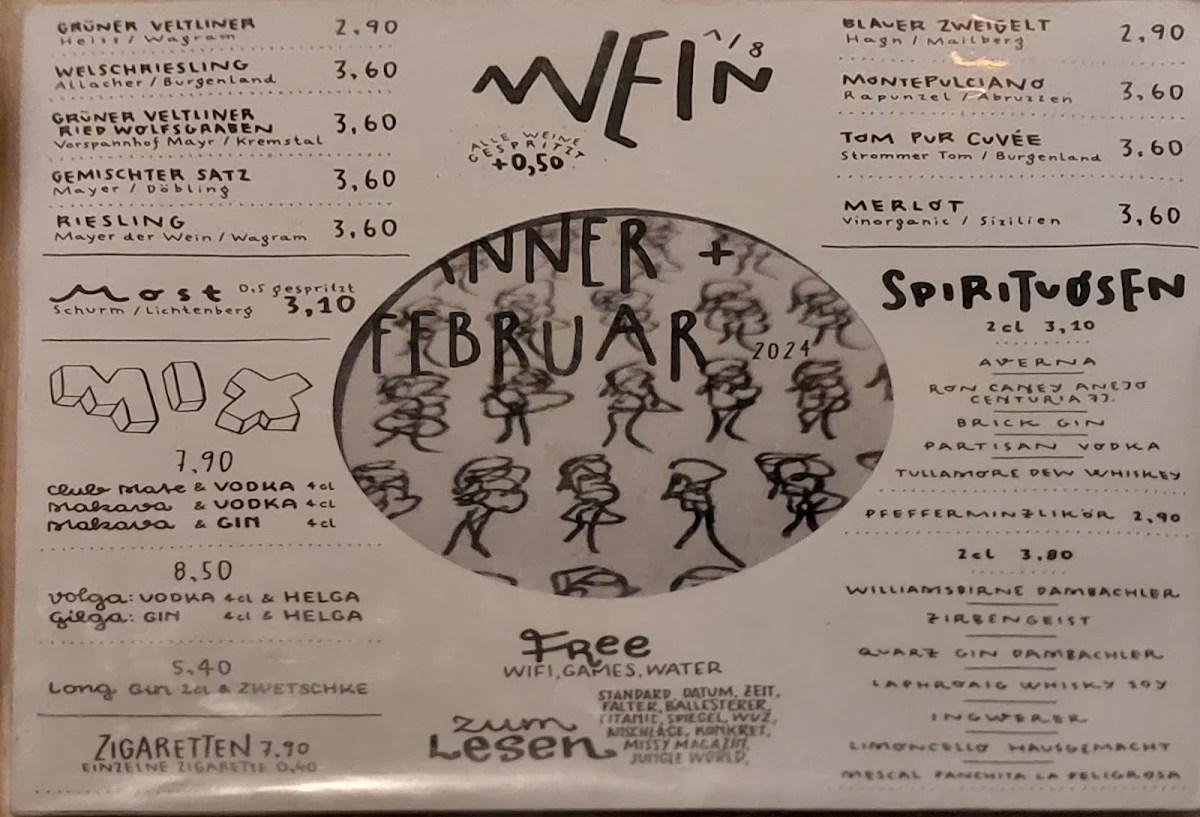 GRÜNER VELTLINER 2,90
Heiss / Wagram
WELSCHRIESLING 3,60
Allacher / Burgenland
GRÜNER VELTLINER
RIED WOLFSGRABEN 3,60
Vorspannhof Mayr / Kremstal
GEMISCHTER SATZ 3,60
Mayer / Döbling
RIESLING 3,60
Mayer der Wein / Wagram
Most 0,5 gespritzt
Schurm / Lichtenberg 3,10
MIX
7,90
club mate & VODKA 4cl
makava & VODKA 4cl
makava & GIN 4cl
8,50
volga: VODKA 4cl & HELGA
gilga: GIN 4cl & HELGA
5,40
Long Gin 2cl & ZWETSCHKE
ZIGARETTEN 7,90
EINZELNE ZIGARETTE 0,40
WEIN 1/8
ALLE WEINE
GESPRITZT
+0,50
JÄNNER +
FEBRUAR 2024
Free
WIFI, GAMES, WATER
zum
Lesen
STANDARD, DATUM, ZEIT,
FALTER, BALLESTERER,
TITANIC, SPIEGEL, WUZ,
KONKRET,
MISSY MAGAZIN,
JUNGLE WORLD,
BLAUER ZWEIGELT 2,90
Hagn / Mailberg
MONTEPULCIANO 3,60
Rapunzel / Abruzzen
TOM PUR CUVÉE 3,60
Strommer Tom / Burgenland
MERLOT 3,60
Vinorganic / Sizilien
SPIRITUOSEN
2cl 3,10
AVERNA
RON CANEY ANEJO
CENTURIA 7J.
BRICK GIN
PARTISAN VODKA
TULLAMORE DEW WHISKEY
PFEFFERMINZLIKÖR 2,90
2cl 3,80
WILLIAMSBIRNE DAMBACHLER
ZIRBENGEIST
QUARZ GIN DAMBACHLER
LAPHROAIG WHISKY 10Y
INGWERER
LIMONCELLO HAUSGEMACHT
MESCAL PANCHITA LA PELIGROSA